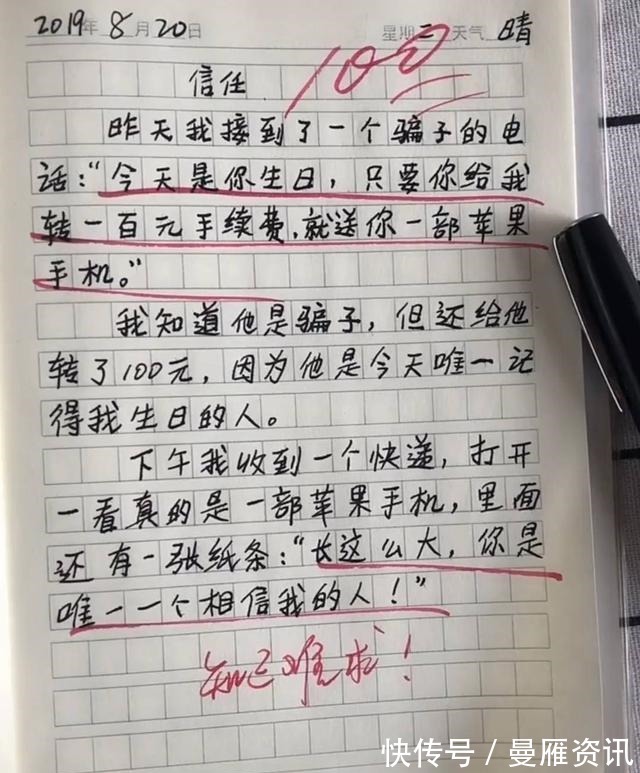 2019年8月20日 星期二 天气 晴
100
信任
昨天我接到了一个骗子的电
话:“今天是你生日,只要你给我
转一百元手续费,就送你一部苹果
手机。”
我知道他是骗子,但还给他
转了100元,因为他是今天唯一记
得我生日的人。
下午我收到一个快递,打开
一看真的是一部苹果手机,里面
还有一张纸条:“长这么大,你是
唯一一个相信我的人!”
知己难求!
快传号/曼雁资讯